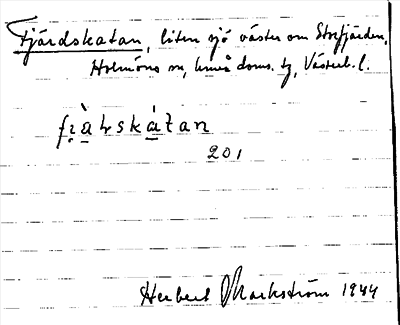 Fjärdskatan, liten sjö väster om Storfjärden,
Holmöns sn, Umeå doms. tg, Västerb. l.
fɪ̣à̠ʰskáƚan
201
Herbert Markström 1944